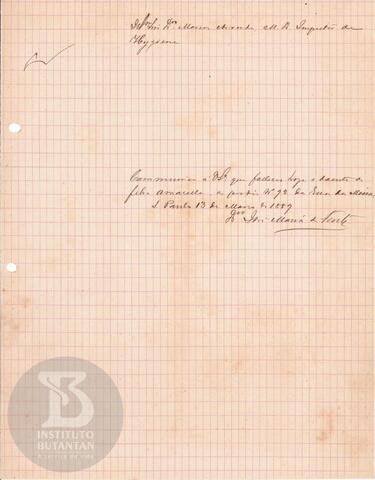 Illmo Snr Dor Marcos Arruda M. D. Inspector de
Hygiene
Communico a V Sa que falleceu hoje o doente de
febre amarella, do predio No 92 da Rua da Moóca.
S. Paulo 13 de Março de 1889
Dor José Maria de
INSTITUTO
BUTANTAN
A serviço da vida